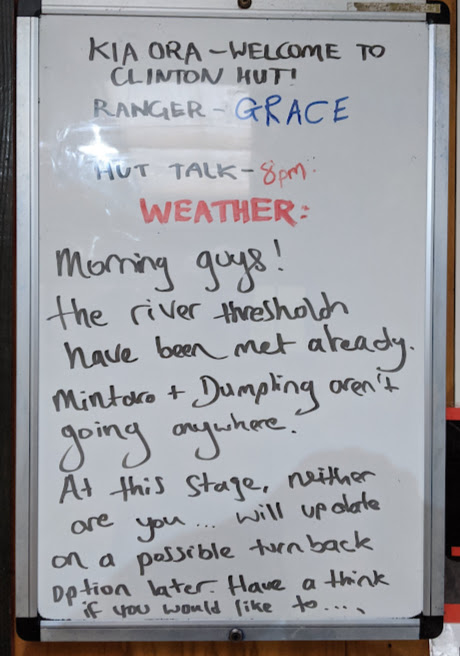 KIA ORA - WELCOME TO
CLINTON HUT!
RANGER - GRACE
HUT TALK - 8pm
WEATHER:
Morning guys!
the river thresholds
have been met already.
Mintaro + Dumpling aren't
going anywhere.
At this stage, neither
are you... will update
on a possible turn back
option later. Have a think
if you would like to....